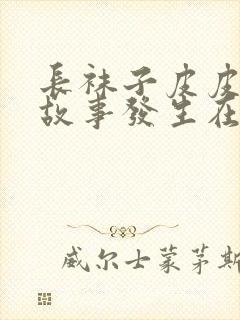 長袜子皮皮
故事發生在
威尔士蒙茅斯